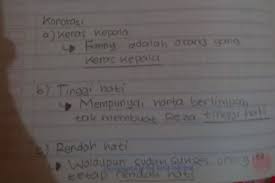 Konotasi
a) Keras Kepala
↳ Fanny adalah orang yang
keras kepala
b) Tinggi hati
↳ Mempunyai harta berlimpah
tak membuat Reza tinggi hati
c) Rendah hati
↳ Walaupun sudah sukses orang
tetap rendah hati